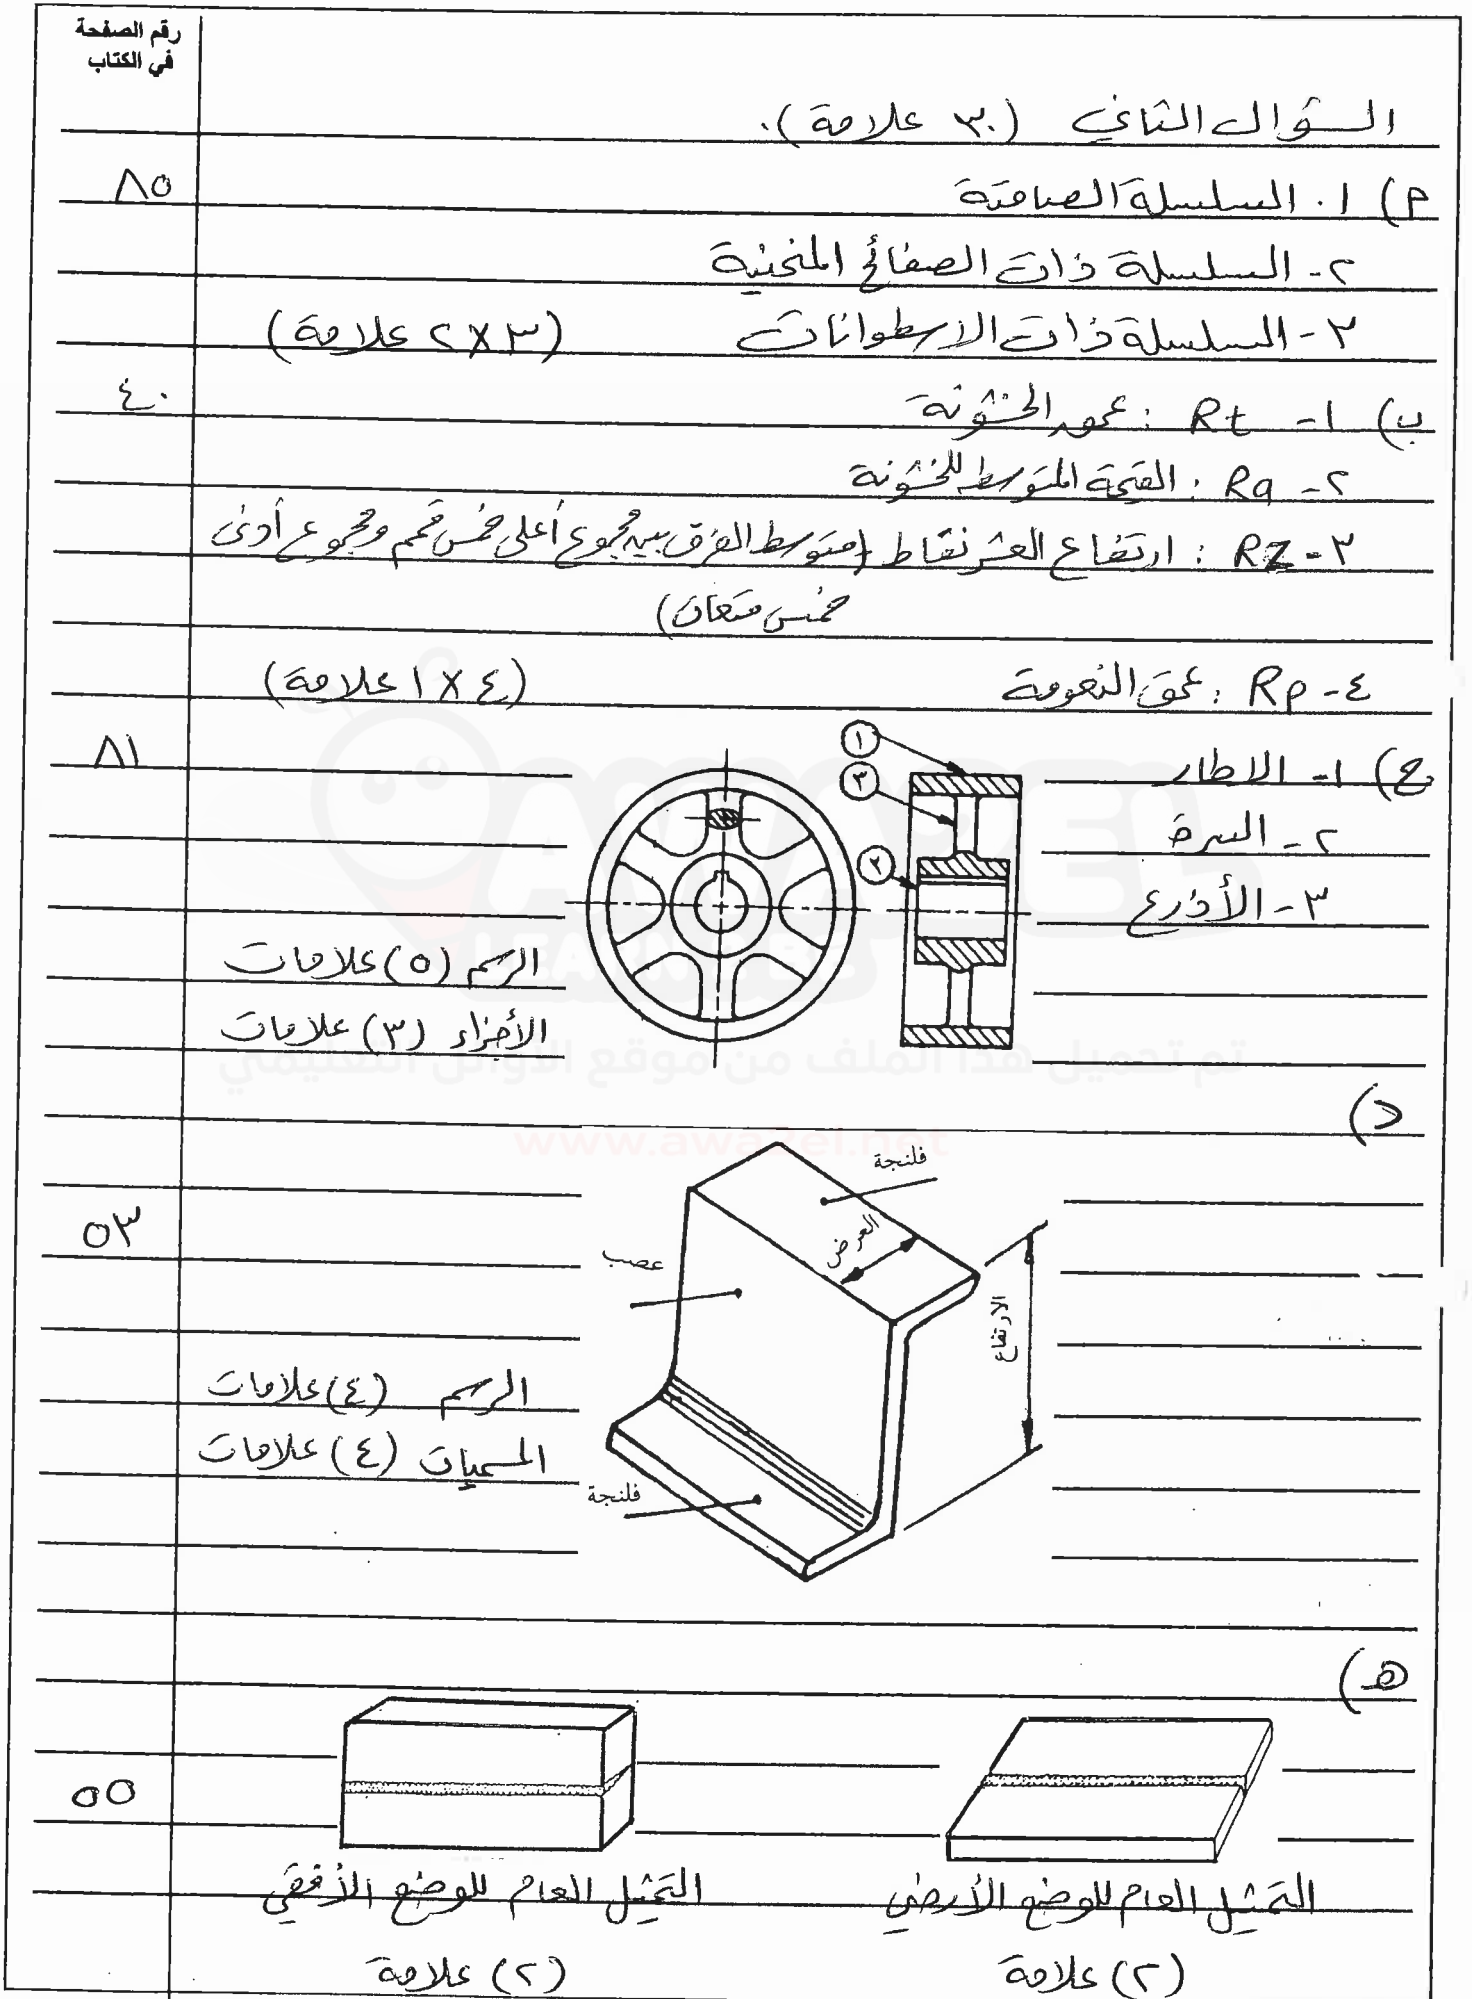 رقم الصفحة
في الكتاب
السؤال الثاني (٣٠ علامة).
م) ١. السلسلة الصامتة ٨٥
٢- السلسلة ذات الصفائح المنحنية
٣- السلسلة ذات الاسطوانات (٣×٢ علامة)
ب) ١- Rt : عمق الخشونة ٤٠
٢- Ra : القيمة المتوسط للخشونة
٣- RZ : ارتفاع العشر نقاط (متوسط الفرق بين مجموع أعلى خمس قمم ومجموع أدنى
خمس قيعان)
٤- Rp : عمق النعومة (٤×١ علامة)
ج) ١- الاطار ٨١
٢- السرة
٣- الأذرع
١
٣
٢
الرسم (٥) علامات
الأجزاء (٣) علامات
تم تحميل هذا الملف من موقع الأوائل التعليمي
AWA2EL
LEARN 2 BE
www.awa2el.net
د) ٥٣
فلنجة
العرض
عصب
الارتفاع
فلنجة
الرسم (٤) علامات
المسميات (٤) علامات
هـ) ٥٥
التمثيل العام للوضع الأرضي
(٢) علامة
التمثيل العام للوضع الأفقي
(٢) علامة